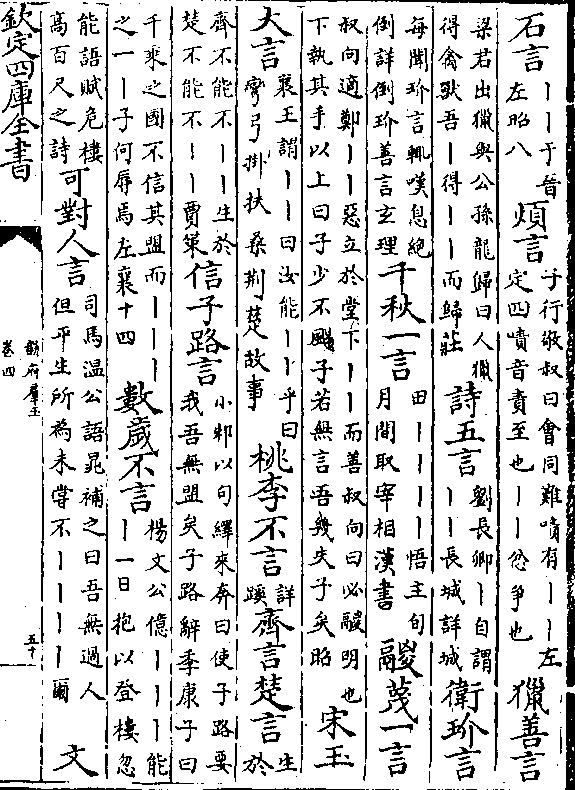 石言丨丨于晉左昭八煩言子行敬叔曰會同難嘖有丨丨左定四嘖音責至也丨丨忿爭也獵善言
梁君出獵與公孫龍歸曰人獵得禽獸吾丨得丨丨而歸莊詩五言劉長卿丨自謂丨丨長城詳城衛玠言
每聞玠言輒嘆息絕倒詳倒玠善言玄理千秋一言田丨丨丨丨悟主旬月間取宰相漢書鬷蔑一言
叔向適鄭丨丨惡立於堂下丨丨而善叔向曰必鬷明也下執其手以上曰子少不颺子若無言吾幾失子矣昭宋玉
大言襄王謂丨丨曰汝能丨丨乎曰彎弓掛扶桑荆楚故事桃李不言詳蹊齊言楚言生於
齊不能不丨丨生於楚不能不丨丨賈策信子路言小邾以句繹來奔曰使子路要我吾無盟矣子路辭季康子曰
千乘之國不信其盟而丨丨丨之一丨子何辱焉左襄十四數歲不言楊文公億丨丨丨丨能丨一日抱以登樓忽
能語賦危樓高百尺之詩可對人言司馬温公語晁補之曰吾無過人但平生所為未嘗不丨丨丨丨爾文
欽定四庫全書
韻府羣玉
卷四
五十